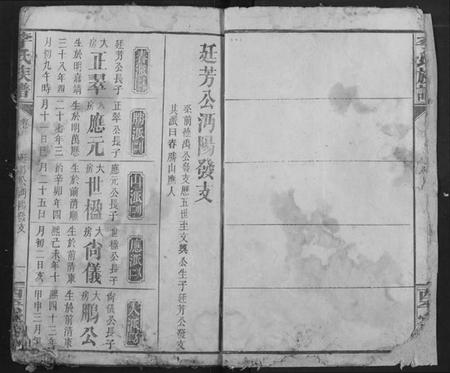 廷芳公沔陽發支
至前池禹公發支歷五世至文興公生子廷芳公發支
其派曰春勝山應人
廷芳公長子
大房正翠
生於明嘉靖
三十八年四
月初九午時
勝派
正翠公長子
大房應元
生於明萬曆
二十七年三
月十一日
山派
應元公長子
大房世楹
生於前清順
治辛卯年四
月二十五日
應派
世楹公長子
大房尙儀
生於前清康
熙己未年十
月初二日
人派
尙儀公長子
大房鵬公
生於前清康
熙四十三年
甲申三月
李氏族譜